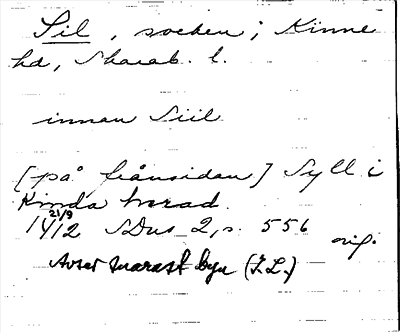 Sil, socken; Kinne
hd, Skarab. l.
innan Siil
[på frånsidan] Syll i
Kinda herad.
21/9
1412 SDns 2, s. 556
orig.
Avser snarast byn (I.L.)